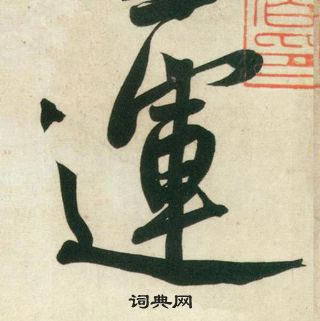 運
词典网